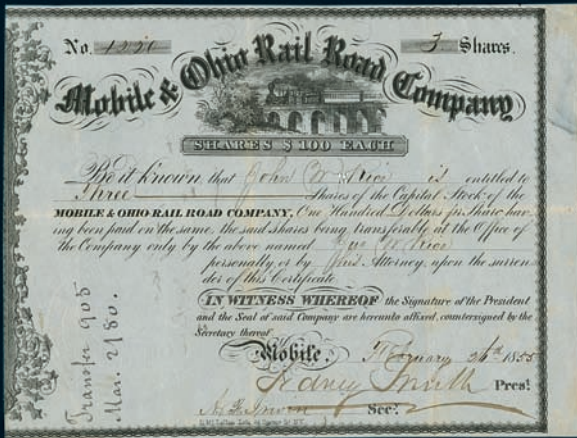 No. 1220 3 Shares.
Mobile & Ohio Rail Road Company
SHARES $100 EACH
Be it known, that John W Rice is entitled to
Three Shares of the Capital Stock of the
MOBILE & OHIO RAIL ROAD COMPANY, One Hundred Dollars pr Share hav-
ing been paid on the same, the said shares being transferable at the Office of
the Company only by the above named Jno W Rice
personally, or by his Attorney, upon the surren-
der of this Certificate.
IN WITNESS WHEREOF the Signature of the President
and the Seal of said Company are hereunto affixed, countersigned by the
Secretary thereof.
Mobile, February 26th 1855
Sidney Smith Prest
Secy
Transfer 905
Mar. 2, 80.